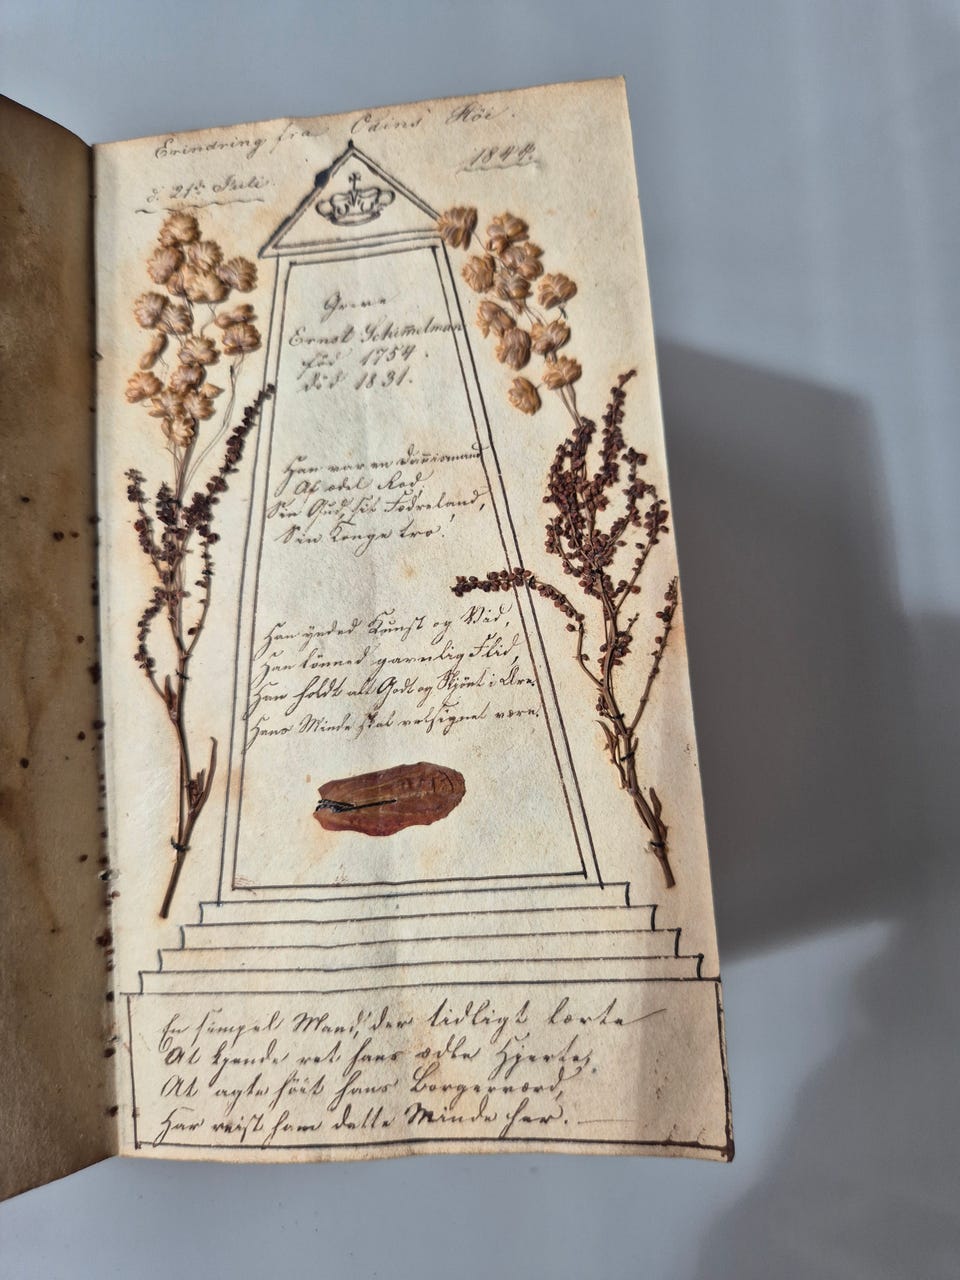 Erindring fra Odins Höi.
d. 21de Juli. 1844.
Greve
Ernst Schimmelman
föd 1754.
död 1831.
Han var en Dannismand
Af ædel Rod.
Sin Gud, sit Födreland,
Sin Konge tro!
Han ynded Kunst og Vid,
Han lönned gavnlig Flid,
Han holdt alt Godt og Skjönt i Ære.
Hans Minde skal velsignet være.
En simpel Mand, der tidligt lærte
At kjende ret hans ædle Hjerte,
At agte höit hans Borgerværd,
Har reist ham dette Minde her.